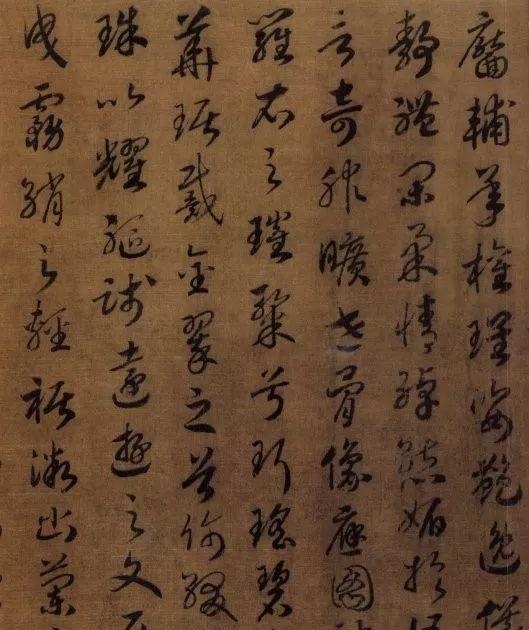 靨輔承權瑰姿艷逸
靜體閑柔情綽態媚於
言奇服曠世骨像應圖
羅衣之璀粲兮珥瑤碧
華琚戴金翠之首飾綴
珠以耀軀踐遠遊之文
曳霧綃之輕裾微幽蘭